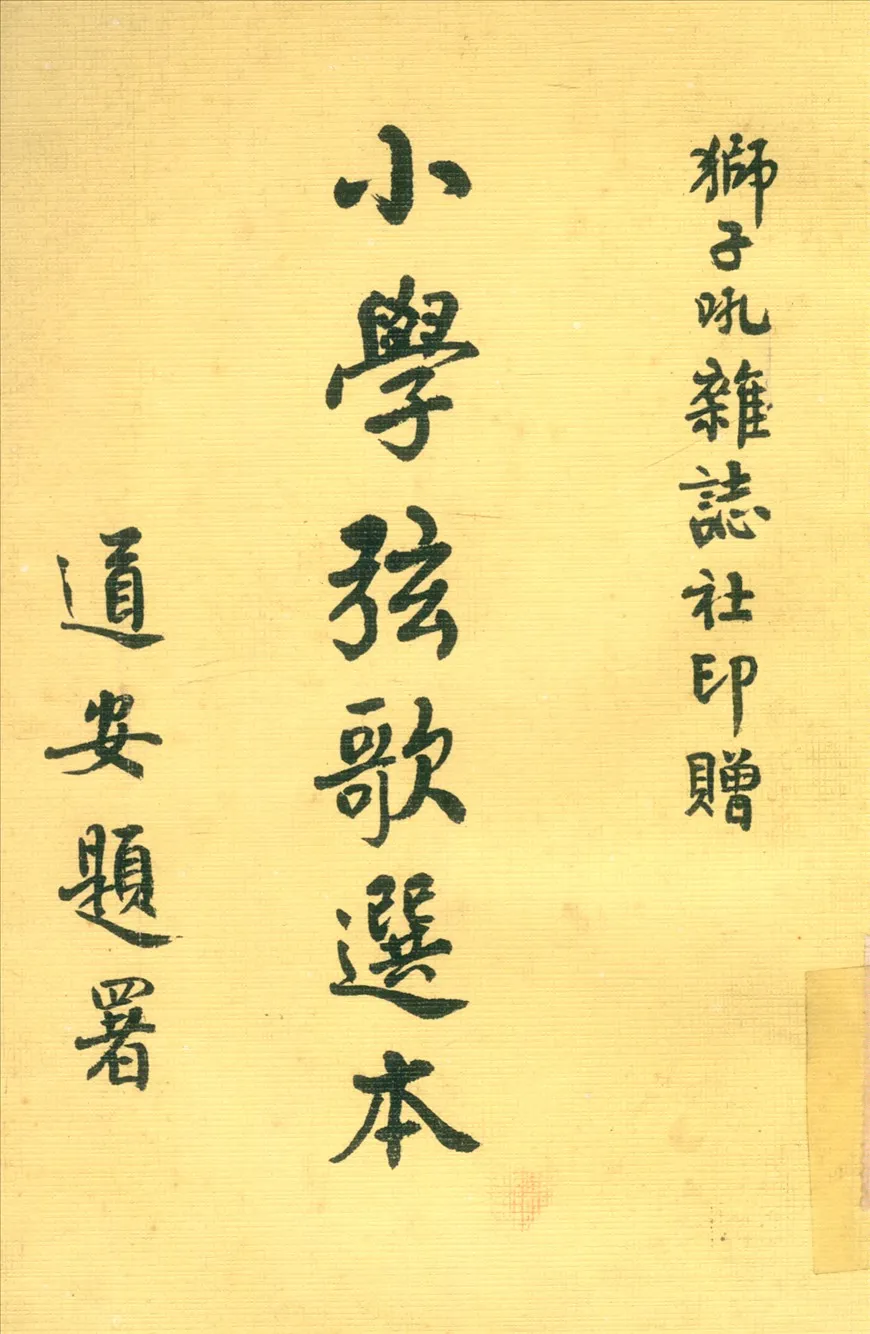 獅子吼雜誌社印贈
小學弦歌選本
道安題署